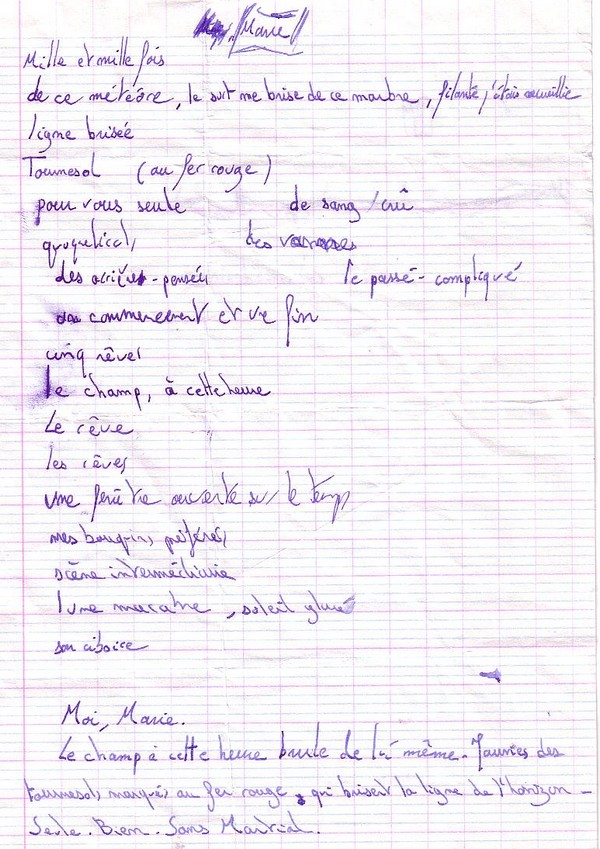 Marie
Mille et mille fois
de ce météore, le suit me brise de ce marbre, filante j'étais accueillie
ligne brisée
Tournesol (au fer rouge)
pour vous seule de sang / crû
des
des arrière-pensées le passé-compliqué
commencement et une fin
cinq rêves
le champ, à cette heure
Le rêve
les rêves
une fenêtre ouverte sur le temps
mes bouquins préférés
scène intermédiaire
lune macabre, soleil glacé
son ciboire
Moi, Marie.
Le champ à cette heure brule de lui même. Jaunies des
tournesols marqués au fer rouge, qui brisent la ligne de l'horizon -
Seule. Bien. Sans Martial.